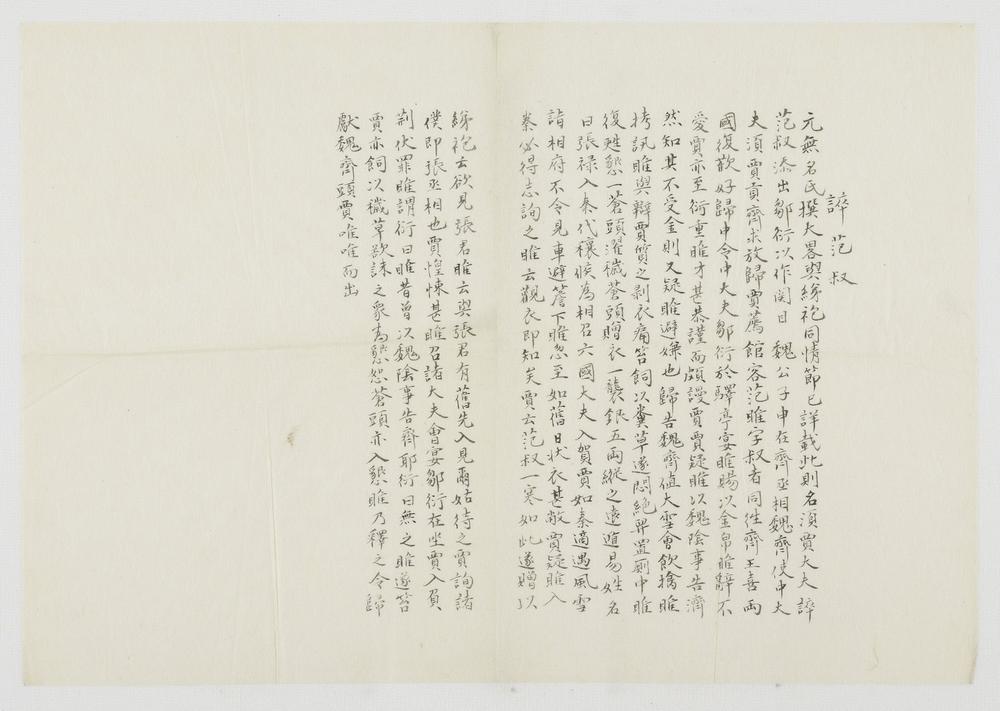 誶范叔
元無名氏撰大畧與綈袍同情節已詳載此則名須賈大夫誶
范叔添出鄒衍以作関目魏公子申在齊丞相魏齊使中大
夫須賈貢齊求放歸賈薦館客范睢字叔者同徃齊王喜両
國復歡好歸申令中大夫鄒衍於驛亭宴睢賜以金帛睢辭不
愛賈亦至衍重睢才甚恭謹而頗謾賈賈疑睢以魏陰事告濟
然知其不受金則又疑睢避嫌也歸告魏齊值大雪會飲擒睢
拷訊睢與辯賈質之剥衣痛笞飼以糞草遂悶絶舁置厠中睢
復甦懇一蒼頭濯穢蒼頭贈衣一襲銀五両縱之遠遁易姓名
曰張禄入秦代穰侯為相召六國大夫入賀賈如秦適遇風雪
詣相府不令見車避簷下睢忽至如舊日狀衣甚敝賈疑睢入
秦必得志詢之睢云觀衣即知矣賈云范叔一寒如此遂贈以
綈袍云欲見張君睢云與張君有舊先入見爾姑待之賈詢諸
僕即張丞相也賈惶悚甚睢召諸大夫會宴鄒衍在坐賈入負
荆伏罪睢謂衍曰睢昔曾以魏陰事告齊耶衍曰無之睢遂笞
賈亦飼以穢草欲誅之衆為懇恕蒼頭亦入懇睢乃釋之令歸
獻魏齊頭賈唯唯而出